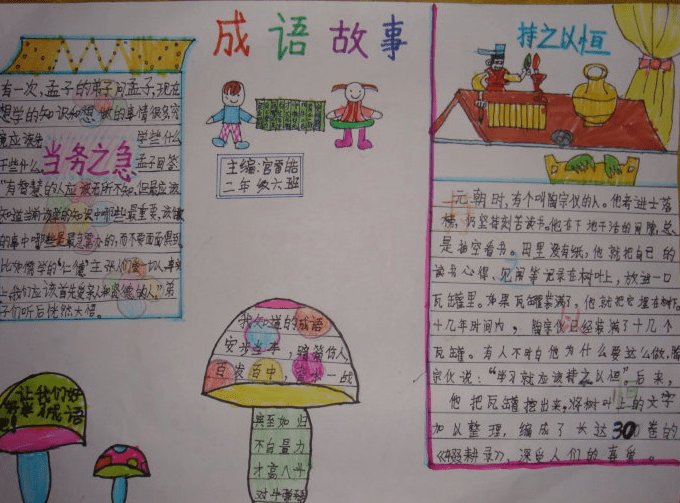 成语故事
主编:宫晋皓
二年级六班
当务之急
有一次,孟子的弟子问孟子,现在
想学的知识和想做的事情很多,究
竟应该先学些什么
干些什么。孟子回答
"有智慧的人应该无所不知,但最应该
知道当前该学的知识中哪些最重要,该做
的事中哪些是最急需办的,而不要面面俱到
上,我们应该首先爱亲人和贤德的人"弟
子们听后恍然大悟。
持之以恒
元朝时,有个叫陶宗仪的人。他考进士落
榜,仍坚持刻苦读书。他在下地干活的间隙,总
是抽空看书。田里没有纸,他就把自己的
读书心得、见闻等记录在树叶上,放进一口
瓦罐里。如果瓦罐装满了,他就把它埋在树下。
十几年时间内,陶宗仪已经装满了十几个
瓦罐。有人不明白他为什么要这么做,陶
宗仪说:"学习就应该持之以恒"。后来,
他把瓦罐挖出来,将树叶上的文字
加以整理,编成了长达30卷的
《辍耕录》,深受人们的喜爱。
我知道的成语
安步当车,骑
百发百中,一战
宾至如归
不自量力
才高八斗
让我们好
成语